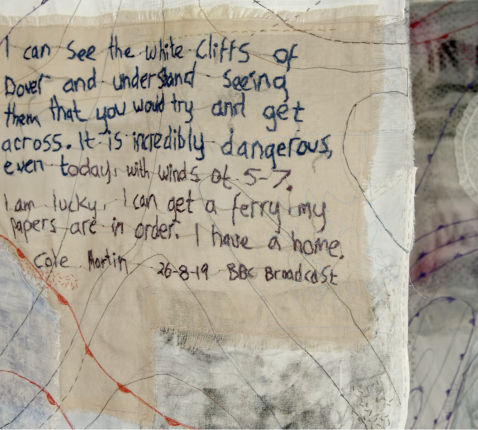 I can see the white cliffs of
Dover and understand seeing
them that you would try and get
across. It is incredibly dangerous,
even today, with winds of 5-7.
I am lucky. I can get a ferry my
papers are in order. I have a home.
Cole Mortin 26-8-19 BBC Broadcast